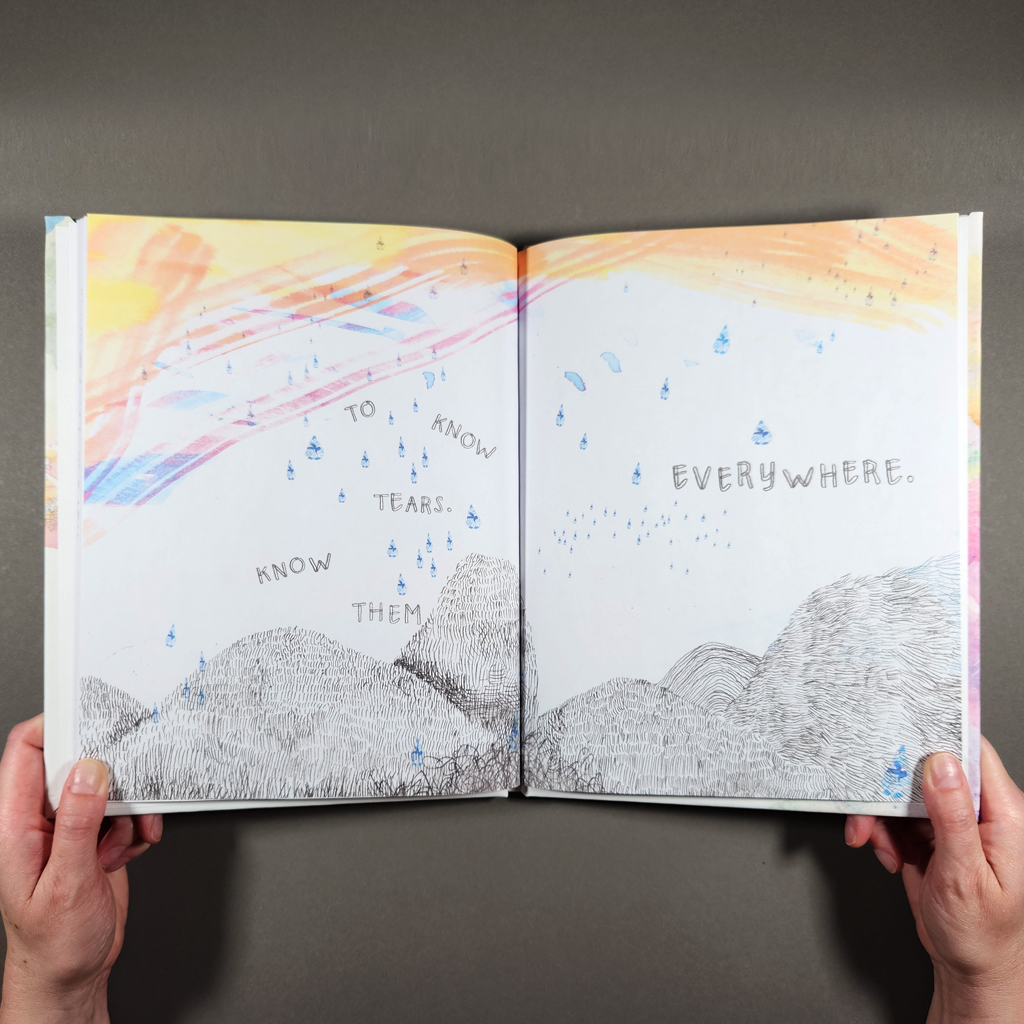 TO KNOW
TEARS.
KNOW
THEM
EVERYWHERE.